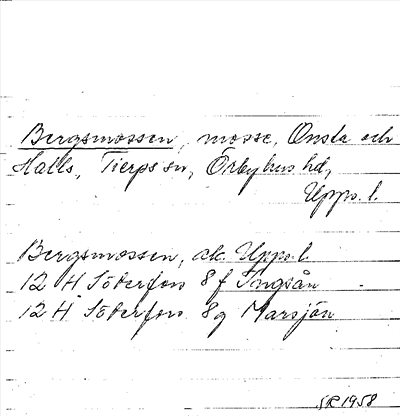 Bergsmossen, mosse, Onsla och
Halls, Tierps sn, Örbyhus hd,
Upps. l.
Bergsmossen, ek. Upps. l.
12 H Söderfors 8 f Yngsån
12 H Söderfors 8g Marsjön
SR 1958